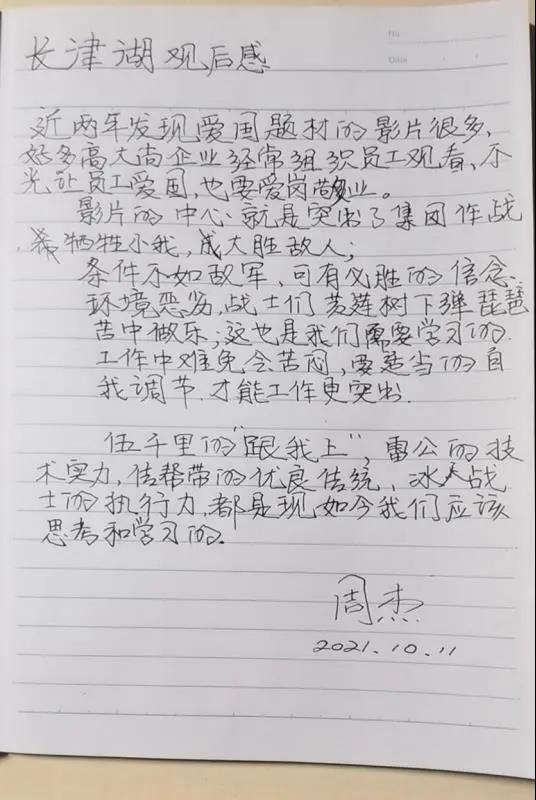 No
Date
长津湖观后感
近两年发现爱国题材的影片很多,
好多高大尚企业经常组织员工观看、不
光让员工爱国,也要爱岗敬业。
影片的中心就是突出了集团作战
牺牲小我,成大胜敌人;
条件不如敌军、可有必胜的信念、
环境恶劣,战士们苦莲树下弹琵琶
苦中做乐;这也是我们需要学习的.
工作中难免会苦闷,要适当的自
我调节.才能工作更突出.
伍千里的"跟我上",雷公的技
术实力,传帮带的优良传统、冰人战
士的执行力,都是现如今我们应该
思考和学习的.
周杰
2021.10.11